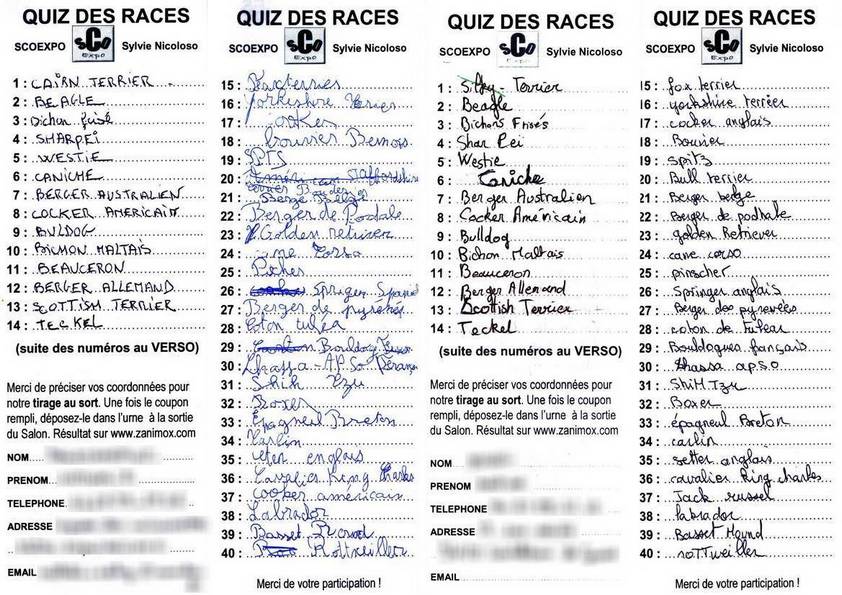 QUIZ DES RACES
SCOEXPO sCo Expo Sylvie Nicoloso
1 : CAIRN TERRIER
2 : BEAGLE
3 : Bichon frisé
4 : SHARPEI
5 : WESTIE
6 : CANICHE
7 : BERGER AUSTRALIEN
8 : COCKER AMERICAIN
9 : BULDOG
10 : BICHON MALTAIS
11 : BEAUCERON
12 : BERGER ALLEMAND
13 : SCOTTISH TERRIER
14 : TECKEL
(suite des numéros au VERSO)
Merci de préciser vos coordonnées pour
notre tirage au sort. Une fois le coupon
rempli, déposez-le dans l'urne à la sortie
du Salon. Résultat sur www.zanimox.com
NOM
PRENOM
TELEPHONE
ADRESSE
EMAIL
QUIZ DES RACES
SCOEXPO sCo Expo Sylvie Nicoloso
15 :
16 : Yorkshire
17 :
18 : bouvier Bernois
19 :
20 :
21 : Berge Belge
22 : Berger de Podale
23 : Golden retriver
24 :
25 :
26 :
27 : Berger de pyrénés
28 : Coton tuléa
29 : Bouldog
30 :
31 : Shih Tzu
32 : Boxer
33 : Epagneul Breton
34 : Carlin
35 : anglais
36 : Cavalier King Charles
37 : américain
38 : Labrador
39 : Basset
40 : Rottweiller
Merci de votre participation !
QUIZ DES RACES
SCOEXPO sCo Expo Sylvie Nicoloso
1 : Silky - Terrier
2 : Beagle
3 : Bichons Frisés
4 : Shar Pei
5 : Westie
6 : Caniche
7 : Berger Australien
8 : Cocker Américain
9 : Bulldog
10 : Bichon Maltais
11 : Beauceron
12 : Berger Allemand
13 : Scottish Terrier
14 : Teckel
(suite des numéros au VERSO)
Merci de préciser vos coordonnées pour
notre tirage au sort. Une fois le coupon
rempli, déposez-le dans l'urne à la sortie
du Salon. Résultat sur www.zanimox.com
NOM
PRENOM
TELEPHONE
ADRESSE
EMAIL
QUIZ DES RACES
SCOEXPO sCo Expo Sylvie Nicoloso
15 : fox terrier
16 : yorkshire terrier
17 : cocker anglais
18 : Bouvier
19 : spitz
20 : Bull terrier
21 : Berger belge
22 : Berger de podhale
23 : golden Retriever
24 : cane corso
25 : pinscher
26 : Springer anglais
27 : Berger des pyrenées
28 : coton de
29 : Bouldogues français
30 : lhassa apso
31 : Shih Tzu
32 : Boxer
33 : épagneul Breton
34 : carlin
35 : setter anglais
36 : cavalier King charles
37 : Jack russel
38 : labrador
39 : Basset Hound
40 : rottweiller
Merci de votre participation !